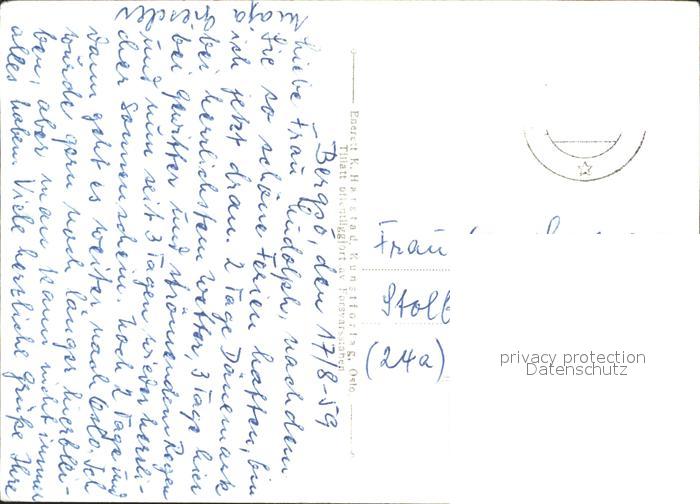 Bergsö, den 17/8-59
Liebe Frau Rudolph, nachdem
Sie so schöne Ferien hatten, bin
ich jetzt dran. 2 Tage Dänemark
bei herrlichstem Wetter, 3 Tage hier
bei Gewitter und strömendem Regen
und nun seit 3 Tagen wieder herrli-
cher Sonnenschein. Noch 2 Tage und
dann geht es weiter nach Oslo. Ich
würde gern noch länger hierblei-
ben, aber man kann nicht immer
alles haben. Viele herrliche Grüße Ihre
Enerett K. Harstad Kunstforlag, Oslo
Tillatt offentliggjort av Forsvarsstaben
Frau
Stolb
(24a)
privacy protection
Datenschutz